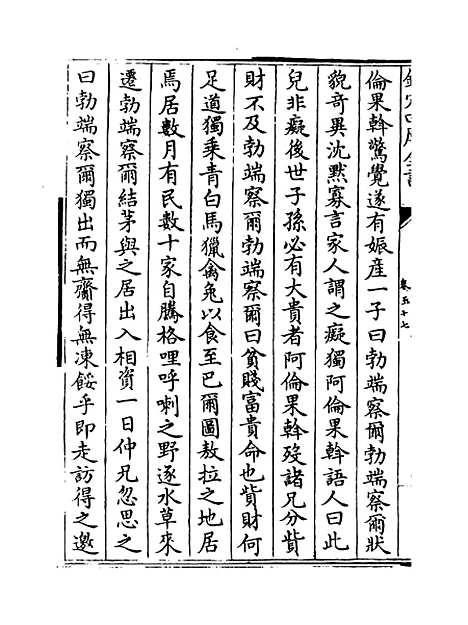 欽定四庫全書
卷五十七
倫果斡驚覺遂有娠産一子曰勃端察爾勃端察爾狀
貌竒異沈黙寡言家人謂之癡獨阿倫果斡語人曰此
兒非癡後世子孫必有大貴者阿倫果斡歿諸兄分貲
財不及勃端察爾勃端察爾曰貧賤富貴命也貲財何
足道獨乘青白馬獵禽兔以食至巴爾圖敖拉之地居
焉居數月有民數十家自騰格哩呼喇之野逐水草來
遷勃端察爾結茅與之居出入相資一日仲兄忽思之
曰勃端察爾獨出而無齎得無凍餒乎即走訪得之邀